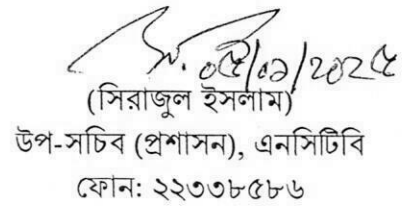 ০৫/০১/২০২৫
(সিরাজুল ইসলাম)
উপ-সচিব (প্রশাসন), এনসিটিবি
ফোন: ২২৩৩৮৫৮৬